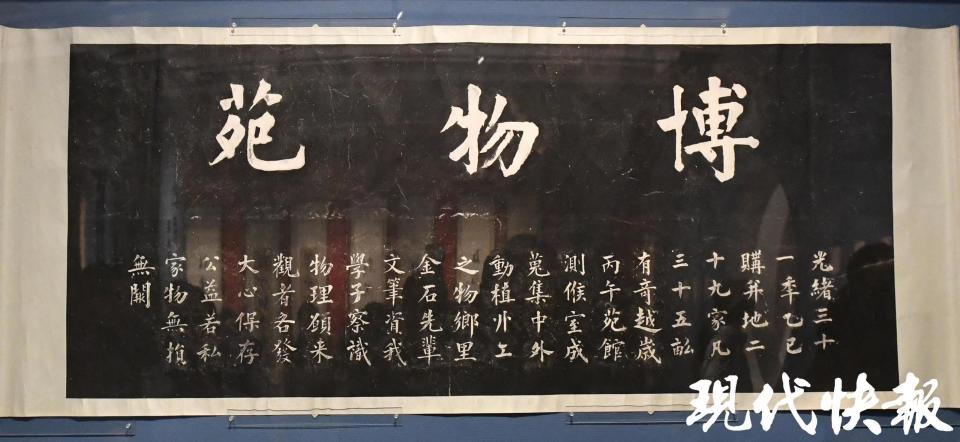 博物苑
光緒三十
一季乙巳
購幷地二
十九家凡
三十五畝
有奇越歲
丙午苑館
測候室成
蒐集中外
動植卝工
之物鄉里
金石先輩
文筆資我
學子察識
物理願来
觀者各發
大心保存
公益若私
家物無損
無闕
现代快报